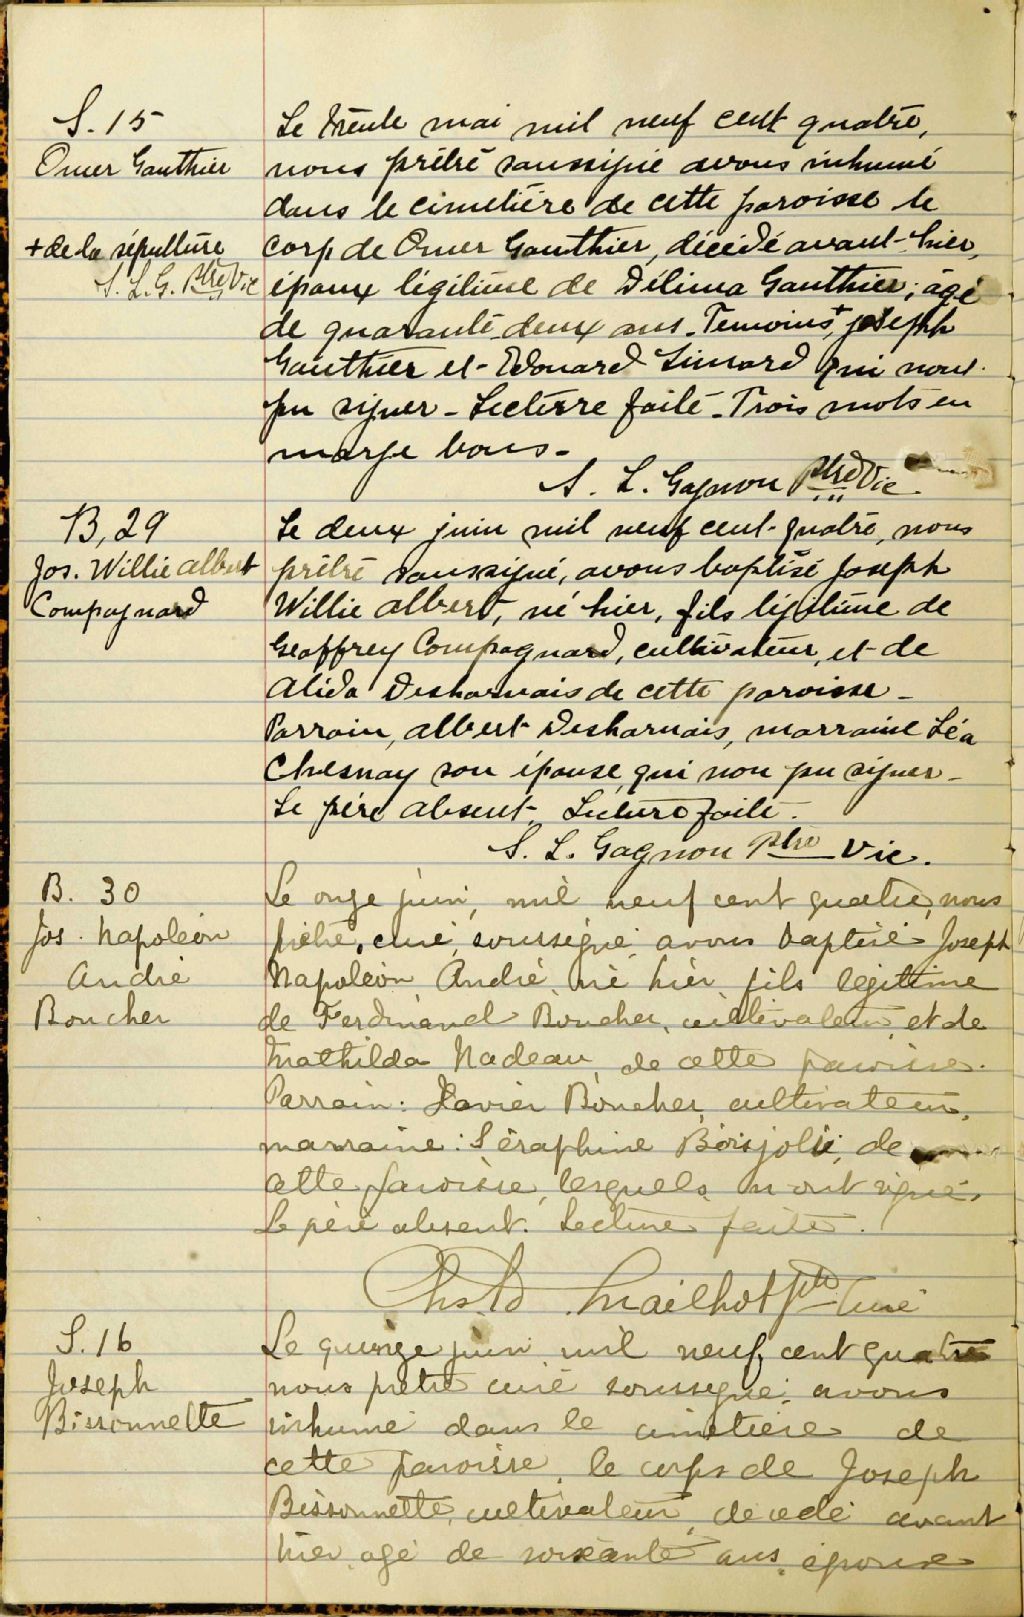 S. 15
Omer Gauthier
+ de la sépulture
S. L. G. Ptre Vic
Le trente mai mil neuf cent quatre,
nous prêtre soussigné avons inhumé
dans le cimetière de cette paroisse le
corp de Omer Gauthier, décédé avant-hier,
époux légitime de Délima Gauthier; âgé
de quarante-deux ans. Temoins+, joseph
Gauthier et Edouard Simard qui nont
pu signer - Lecture faite - Trois mots en
marge bons -
S. L. Gagnon Ptre Vic
B, 29
Jos. Willie albert
Compagnard
Le deux juin mil neuf cent-quatre, nous
prêtre soussigné, avons baptisé Joseph
Willie albert, né hier, fils légitime de
Geoffrey Compagnard, cultivateur, et de
Alida Desharnais de cette paroisse -
Parrain, albert Desharnais, marraine Léa
Chesnay son épouse qui non pu signer -
Le père absent. Lecture faite.
S. L. Gagnon Ptre Vic.
B. 30
Jos. Napoléon
André
Boucher
Le onze juin, mil neuf cent quatre, nous
prêtre, curé, soussigné, avons baptisé Joseph
Napoléon André né hier, fils légitime
de Ferdinand Boucher, cultivateur, et de
Mathilda Nadeau, de cette paroisse.
Parrain: Xavier Boucher, cultivateur,
marraine: Séraphine Boisjolie, de
cette paroisse, lesquels n'ont signé.
Le père absent. Lecture faite.
Mailhot ptre Curé
S. 16
Joseph
Bissonnette
Le quinze juin mil neuf cent quatre
nous prêtre curé soussigné, avons
inhumé dans le cimetière de
cette paroisse, le corps de Joseph
Bissonnette, cultivateur, décédé avant
hier, agé de soixante ans, époux